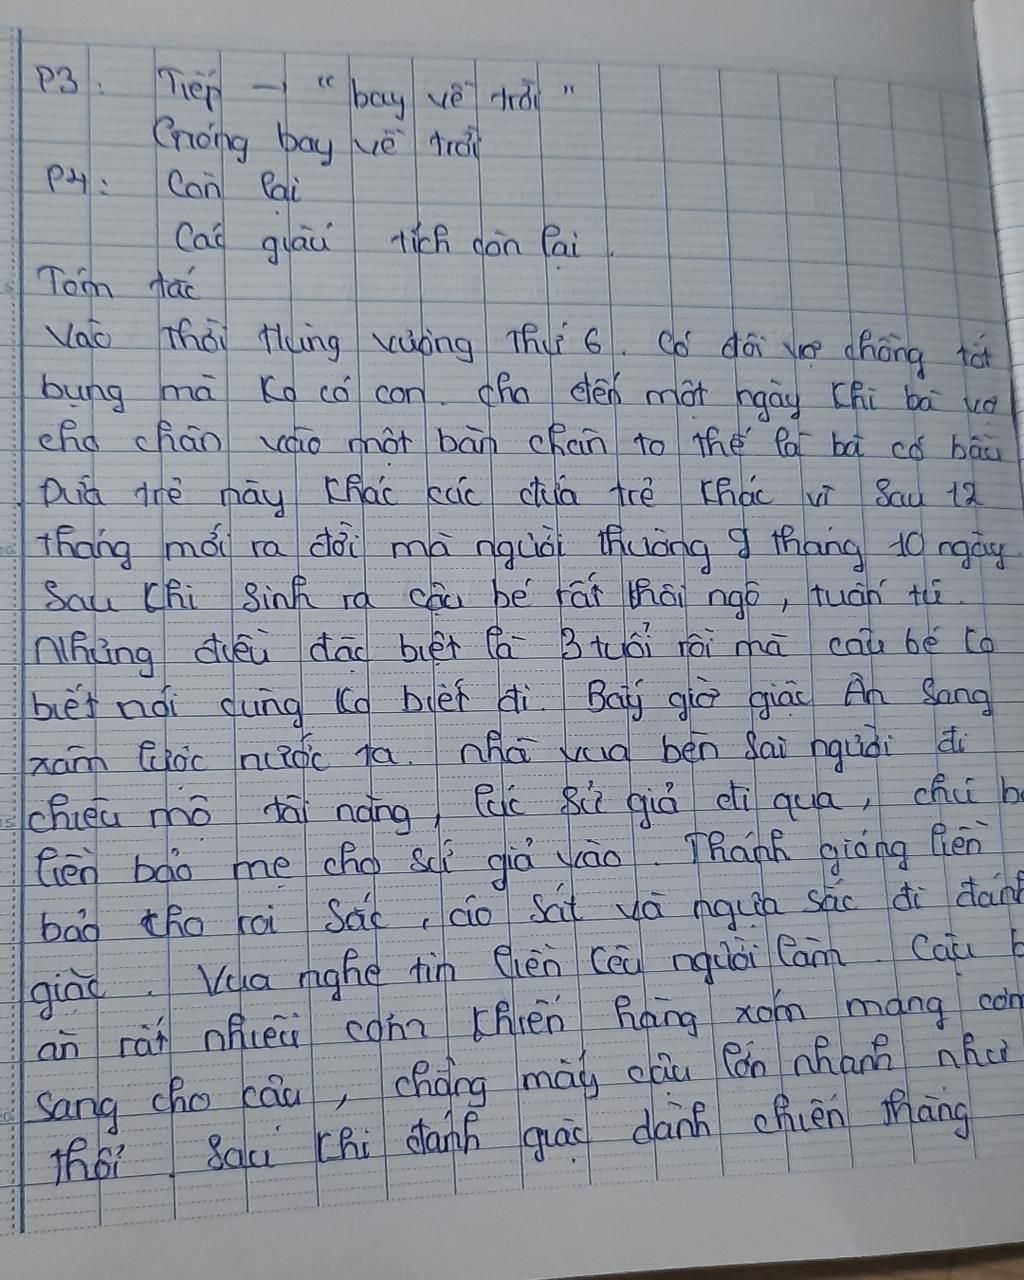 P3: Tiếp → "bay về trời"
Gióng bay về trời
P4: Còn lại
Các giấu tích còn lại.
Tóm tắc
Vào thời Hùng vương thứ 6. Có đôi vợ chồng tốt
bụng mà ko có con. cho đến một ngày khi bà vợ
cho chân vào một bàn chân to thế là bà có bầu
Đứa trẻ này khác các đứa trẻ khác vì sau 12
tháng mới ra đời mà người thường 9 tháng 10 ngày
Sau khi sinh ra cậu bé rất khôi ngô, tuấn tú.
Nhưng điều đặc biệt là 3 tuổi rồi mà cậu bé ko
biết nói cũng ko biết đi. Bấy giờ giặc Ân sang
xâm lược nước ta. nhà vua bèn sai người đi
chiêu mộ tài năng, lúc sứ giả đi qua, chú bé
liền bảo mẹ cho sứ giả vào. Thánh gióng liền
bảo cho roi sắc, áo sắt và ngựa sắc đi đánh
giặc. Vua nghe tin liền kêu người làm. Cậu b
ăn rất nhiều cơm khiến hàng xóm mang cơm
sang cho cậu, chẳng mấy cậu lớn nhanh như
thổi. Sau khi đánh giặc dành chiến thắng